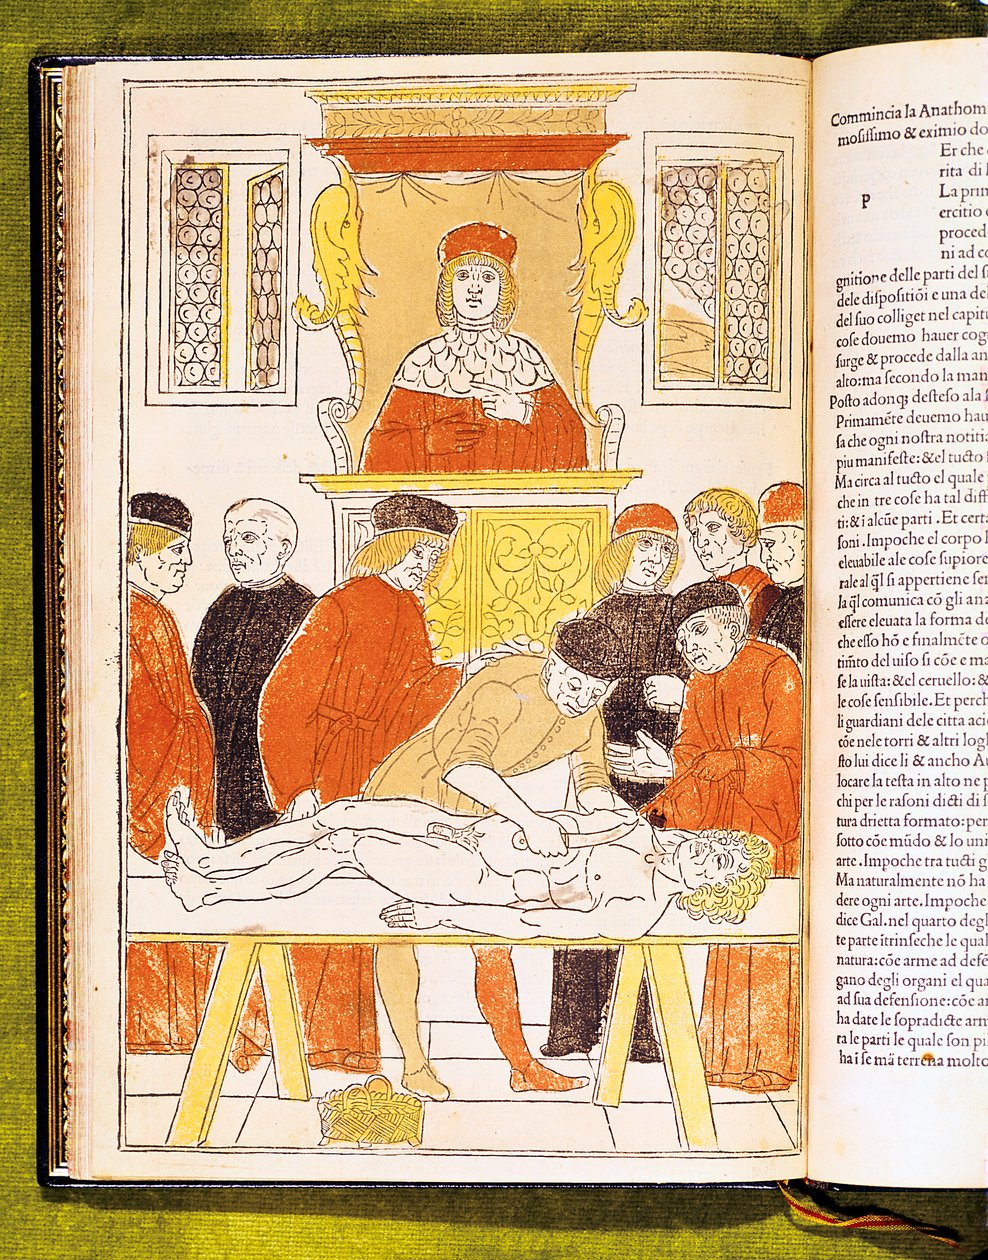 Commincia la Anathom
mosissimo & eximio do
Er che
rita di
P
La prim
ercitio
procede
ni ad co
gnitione delle parti del
dele dispositiõi e una del
del suo colliget nel capit
cose douemo hauer cog
surge & procede dalla an
alto: ma secondo la man
Posto adonq; desteso ala
Primamẽte deuemo hau
sa che ogni nostra notitia
piu manifeste: & el tucto
Ma circa al tucto el quale
che in tre cose ha tal diff
ti: & i alcũe parti . Et certa
soni . Impoche el corpo
eleuabile ale cose supiore
rale al q̃l si appertiene ser
la q̃l comunica cõ gli an
essere eleuata la forma de
che esso hõ e finalmẽte o
tim̃to del uiso si cõe e ma
se la uista: & el ceruello: &
le cose sensibile . Et perch
li guardiani dele citta aci
cõe nele torri & altri logh
sto lui dice li & ancho A
locare la testa in alto ne p
chi per le rasoni dicti di s
tura drietta formato: per
sotto cõe mũdo & lo uni
arte . Impoche tra tucti g
Ma naturalmente nõ ha
dere ogni arte. Impoche
dice Gal. nel quarto degl
te parte itrinseche le qual
natura: cõe arme ad defẽ
gano degli organi el qua
ad sua defensione: cõe ar
ha date le sopradicte arm
ra le parti le quale son pi
ha i se mã terrena molto